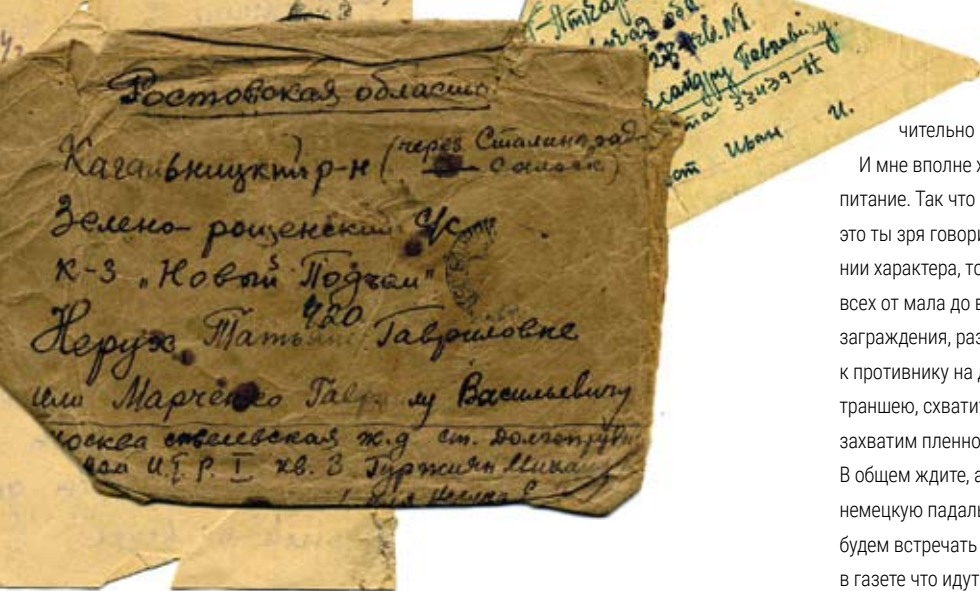 Ростовская область
Кагальницкий р-н (через Сталинград
Сальск)
Зелено-рощенский с/с
К-3 „Новый Подъем"
420
Неруж Татьяне Гавриловне
или Марченко Гаврилу Васильевичу
Москва савеловская ж.д ст. Долгопрудн
И.Т.Р. I кв. 3 Гуржиян Михаил
обл
кв. №1
Павловичу
33439-И
Иван И.
чительно
И мне вполне х
питание. Так что
это ты зря говори
нии характера, то
всех от мала до в
заграждения, раз
к противнику на д
траншею, схватит
захватим пленно
В общем ждите, а
немецкую падаль
будем встречать
в газете что идут